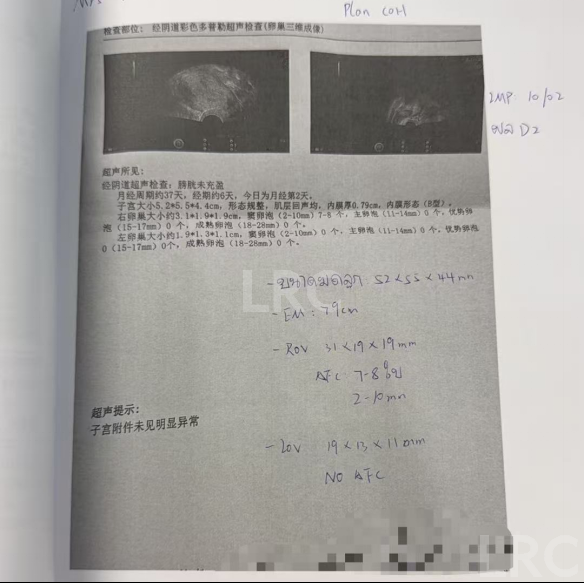 Plan COH
检查部位: 经阴道彩色多普勒超声检查(卵巢三维成像)
LMP 10/02
D2
超声所见:
经阴道超声检查, 膀胱未充盈
月经周期约37天, 经期约6天, 今日为月经第2天。
子宫大小5.2*5.5*4.4cm, 形态规整, 肌层回声均, 内膜厚0.79cm, 内膜形态 (B型) 。
右卵巢大小约3.1*1.9*1.9cm, 窦卵泡 (2-10mm) 7-8 个, 主卵泡 (11-14mm) 0 个, 优势卵
泡 (15-17mm) 0 个, 成熟卵泡 (18-28mm) 0 个。
左卵巢大小约1.9*1.3*1.1cm, 窦卵泡 (2-10mm) 0 个, 主卵泡 (11-14mm) 0 个, 优势卵泡
(15-17mm) 0个, 成熟卵泡 (18-28mm) 0 个。
52 x 55 x 44 mm
LRC
- EM : 79cm
- ROV 31 x 19 x 19 mm
AFC 7-8
2-10mm
超声提示:
子宫附件未见明显异常
- LOV 19 x 13 x 11 mm
NO AFC
LRC